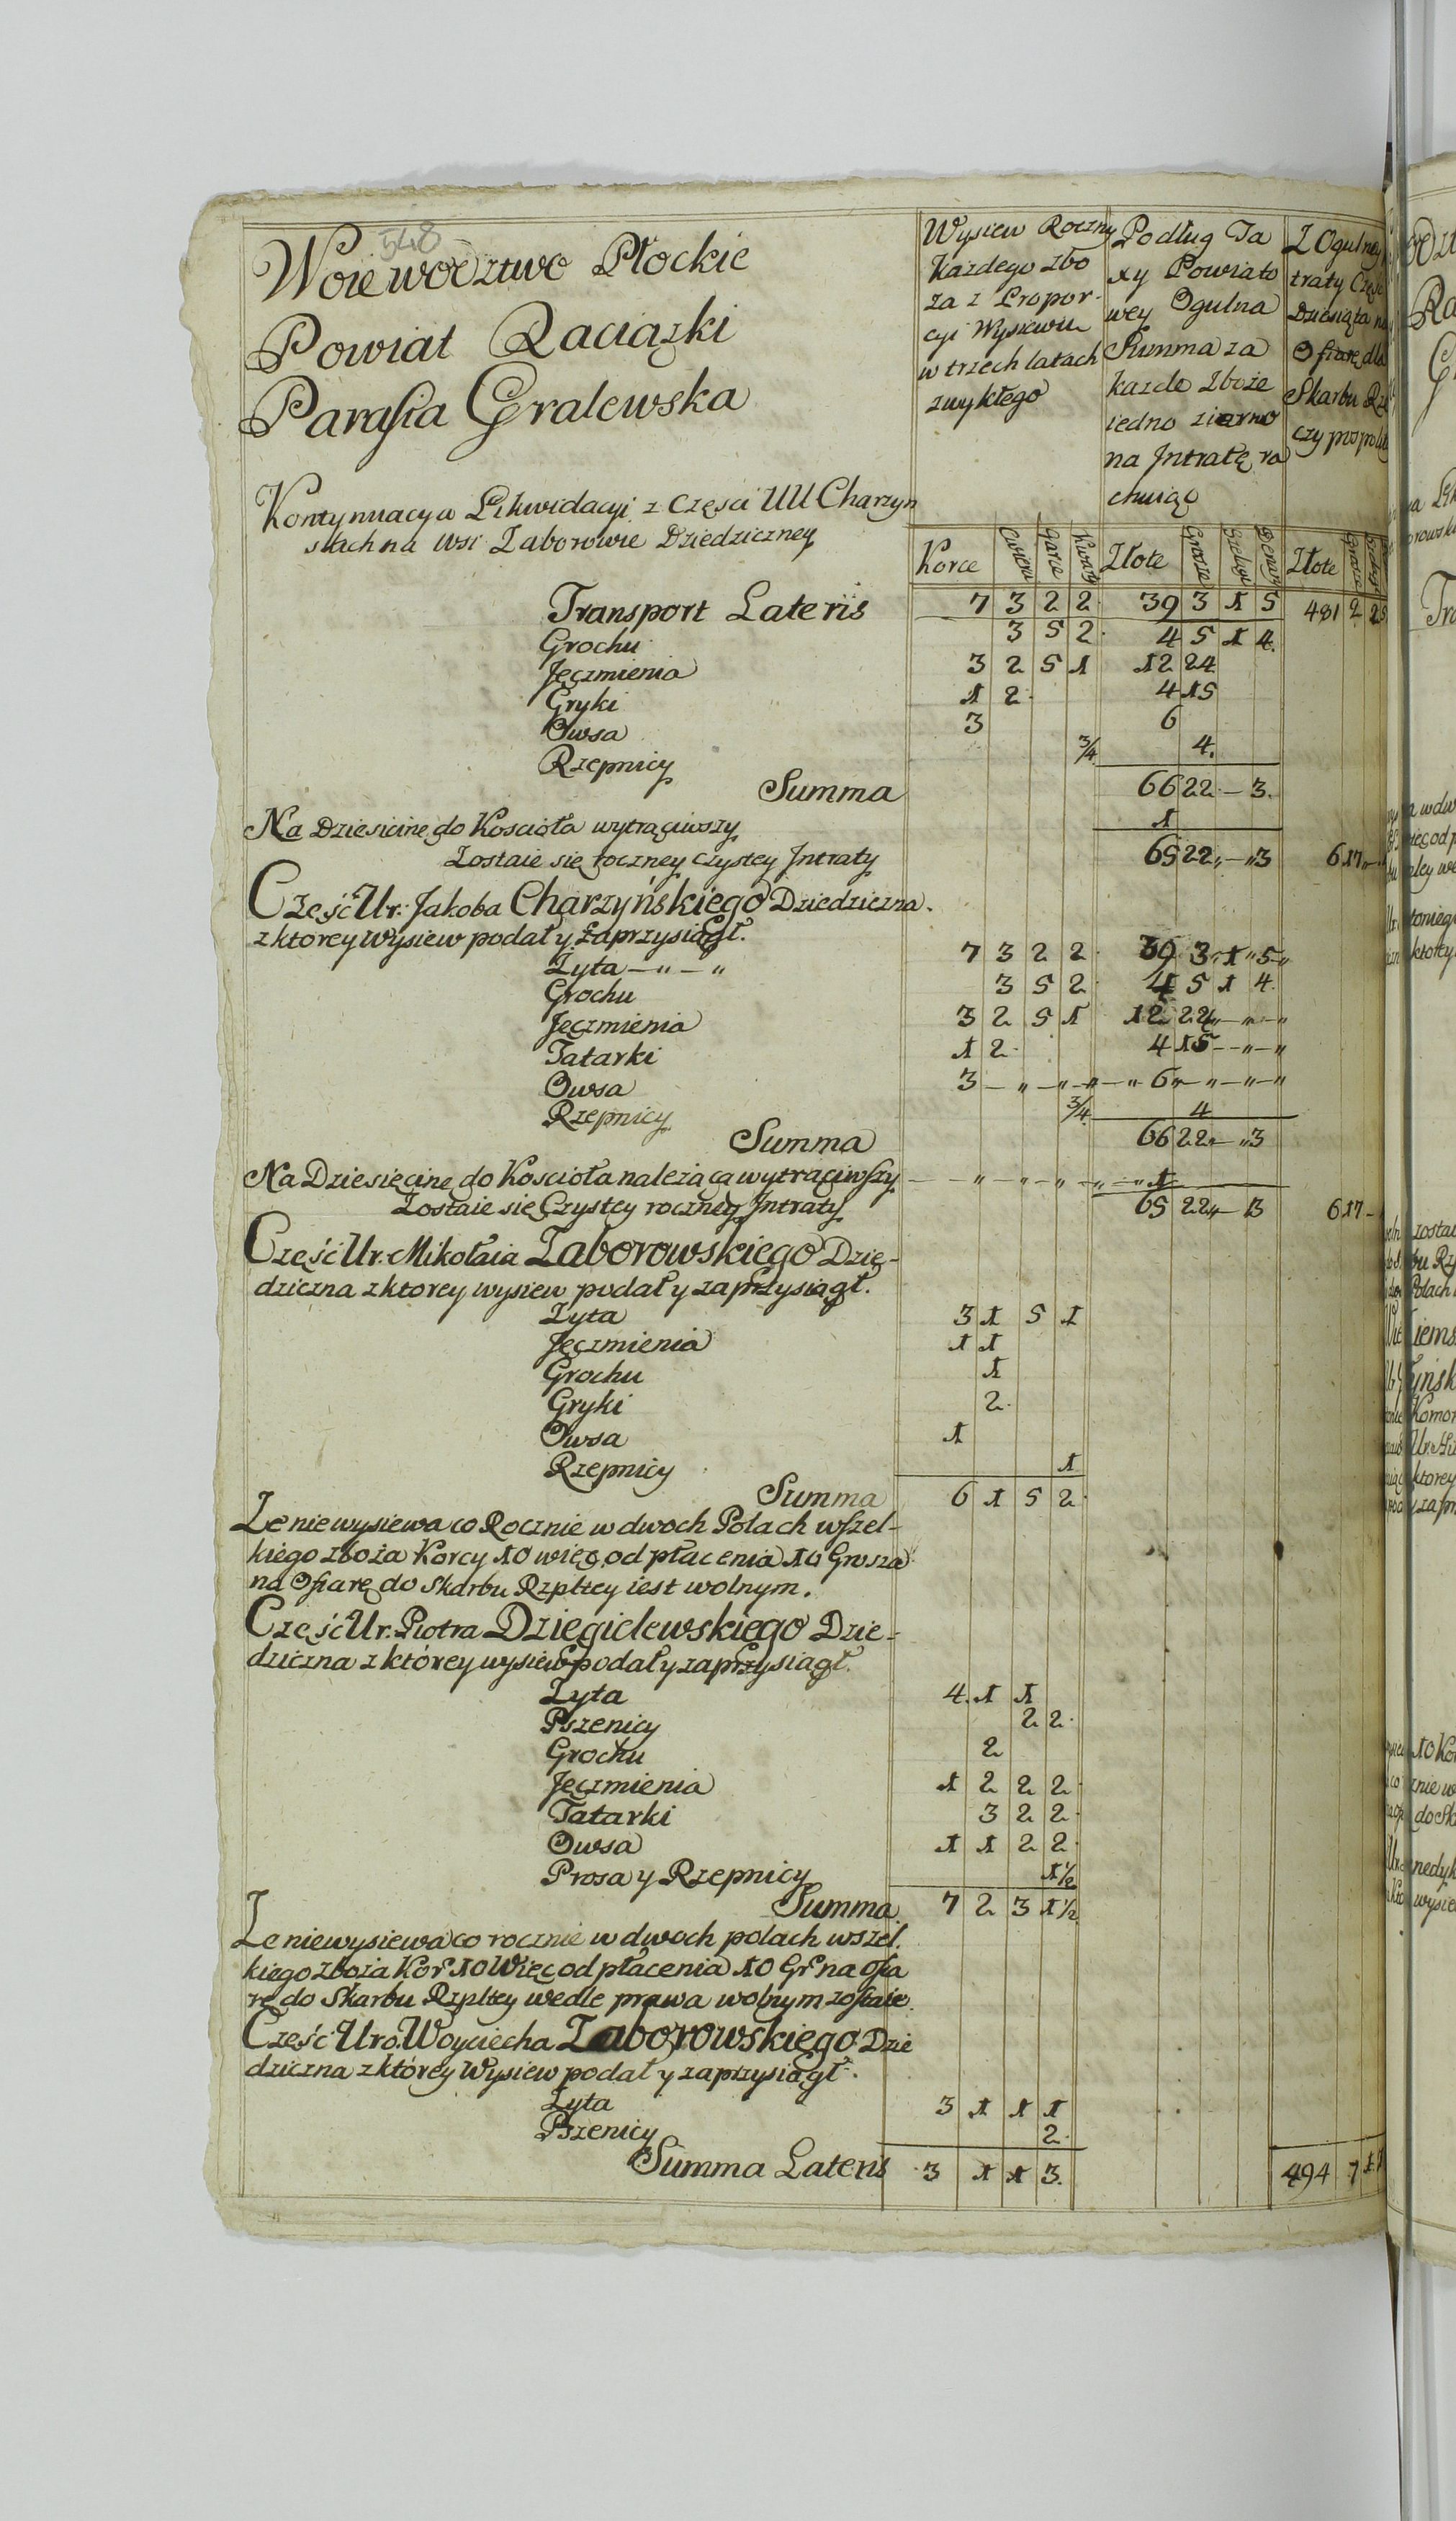 548
Woiewodztwo Płockie
Powiat Raciązki
Parafia Gralewska
Kontynuacya Likwidacyi z Częsci UU Charzyn
skach na Wsi Zaborowie Dziedziczney
Wysiew Roczny
Kazdego zbo
za z Propor-
cyi Wysiewu
w trzech latach
zwykłego
Podług Ta
xy Powiato
wey Ogulna
Summa za
kazde Zboże
iedno ziarno
na Jntratę ra
chuiąc
Z Ogulney
traty Częsc
Dziesiąta na
Ofiarę dla
Skarbu Rze
czypospolitey
Korce Cwierci Garce Kwarty Złote Grosze Szelągi Denary Złote Grosze Szelągi
Transport Lateris 7 3 2 2 39 3 1 5 481 2 2
Grochu 3 5 2 4 5 1 4
Jęczmienia 3 2 5 1 12 24
Gryki 1 2 4 15
Owsa 3 6
Rzepnicy 3/4 4
Summa 66 22 - 3
Na Dziesicinę do Koscioła wytrąciwszy 1
Zostaie się roczney czystey Jntraty 65 22 - 3 6 17
Część Ur: Jakoba Charzyńskiego Dziedziczna
z ktorey Wysiew podał y zaprzysiągł.
Zyta 7 3 2 2 39 3 1 5
Grochu 3 5 2 4 5 1 4
Jęczmienia 3 2 5 1 12 24
Tatarki 1 2 4 15
Owsa 3 6
Rzepnicy 3/4 4
Summa 66 22 - 3
Na Dziesięcinę do Koscioła należącą wytrąciwszy 1
Zostaie się Czystey roczney Jntraty 65 22 - 3 6 17
Część Ur. Mikołaia Zaborowskiego Dzie-
dziczna z ktorey wysiew podał y zaprzysiągł.
Zyta 3 1 5 1
Jęczmienia 1 1
Grochu 1
Gryki 2
Owsa 1
Rzepnicy 1
Summa 6 1 5 2
Ze niewysiewa co Rocznie w dwoch Polach wszel-
kiego zboża Korcy 10 więc od płacenia 10 Grosza
na Ofiarę do Skarbu Rzpltey iest wolnym.
Część Ur. Piotra Dziegielewskiego Dzie-
dziczna z którey wysiew podał y zaprzysiągł.
Zyta 4 1 1
Pszenicy 2 2
Grochu 2
Jęczmienia 1 2 2 2
Tatarki 3 2 2
Owsa 1 1 2 2
Prosa y Rzepnicy 1 1/2
Summa 7 2 3 1 1/2
Ze niewysiewa co rocznie w dwoch polach wszel.
kiego zboża Kor 10 Więc od płacenia 10 Gr na ofia
rę do Skarbu Rzpltey wedle prawa wolnym zostaie.
Część Uro. Woyciecha Zaborowskiego Dzie
dziczna z którey Wysiew podał y zaprzysiągł.
Zyta 3 1 1 1
Pszenicy 2
Summa Lateris 3 1 1 3 494 7